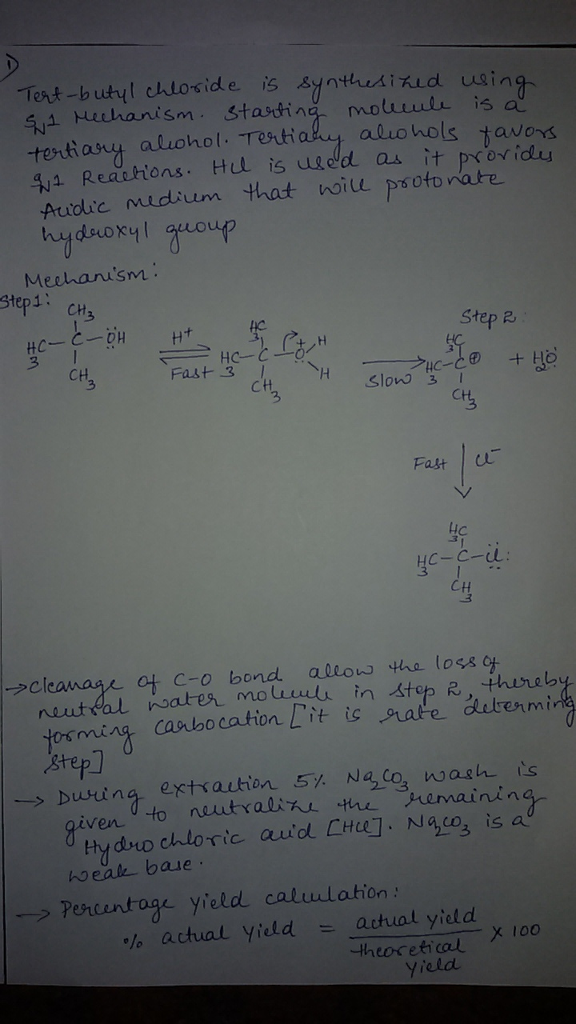 1)
Tert-butyl chloride is synthesized using
SN1 Mechanism. Starting molecule is a
tertiary alcohol. Tertiary alcohols favors
SN1 Reactions. HCl is used as it provides
Acidic medium that will protonate
hydroxyl group
Mechanism:
Step 1:
CH3
H3C-C-ÖH
CH3
H+
Fast
H3C
H3C-C-O+
H
H
CH3
slow
Step 2
H3C
H3C-C⊕
CH3
+ H2O
Fast
Cl-
H3C
H3C-C-Cl:
CH3
→ cleavage of C-O bond allow the loss of
neutral water molecule in step 2, thereby
forming carbocation [it is rate determining
step]
→ During extraction 5% Na2CO3 wash is
given to neutralize the remaining
Hydrochloric acid [HCl]. Na2CO3 is a
weak base.
→ Percentage yield calculation:
% actual yield = actual yield / theoretical yield × 100